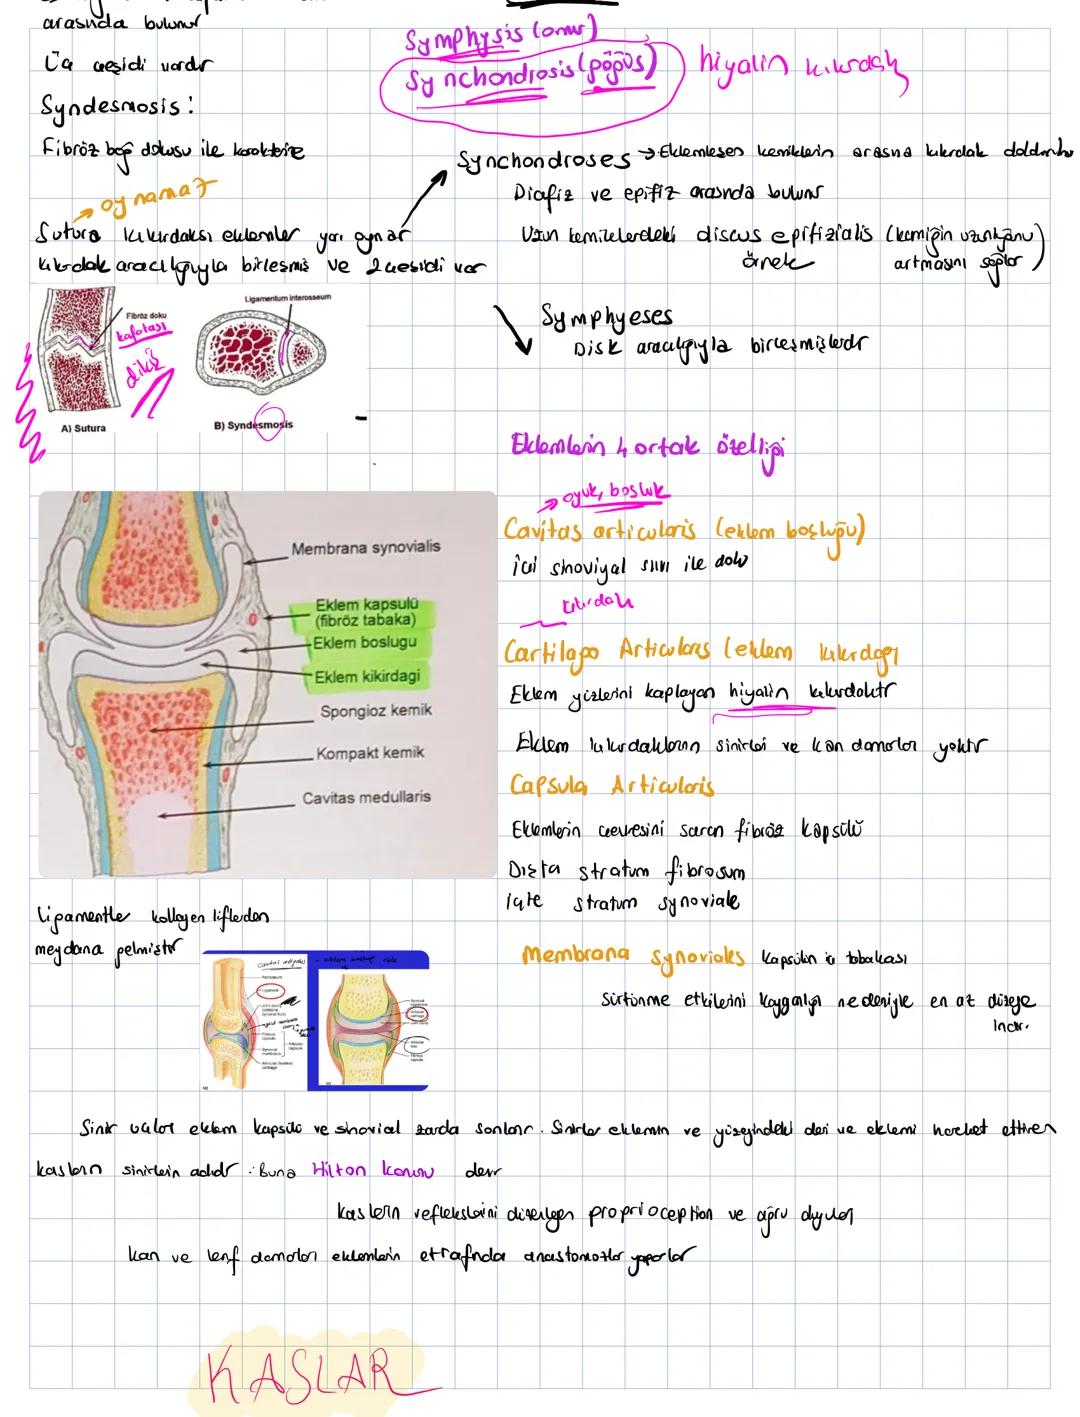 arasında bulunur
Üç çeşidi vardır
Syndesmosis :
Fibröz bağ dokusu ile karakterize
→ oynamaz
Sutura kıkırdaksı eklemler yarı oynar
kıkırdak aracılığıyla birleşmiş ve 2 çeşidi var
Symphysis (omur)
Synchondrosis (göğüs)
hiyalin kıkırdak
Synchondroses → Eklemleşen kemiklerin arasına kıkırdak doldurulu
Diafiz ve epifiz arasında bulunur
Uzun kemiklerdeki discus epifizialis (kemiğin uzunluğunu
örnek artmasını sağlar)
Symphyeses
Disk aracılığıyla birleşmişlerdir
Fibröz doku
kafatası
dikiş
A) Sutura
Ligamentum interosseum
B) Syndesmosis
Eklemlerin 4 ortak özelliği
→ oyuk, boşluk
Cavitas articularis (eklem boşluğu)
içi sinoviyal sıvı ile dolu
kıkırdak
Cartilago Articularis (eklem kıkırdağı
Eklem yüzlerini kaplayan hiyalin kıkırdaktır
Eklem kıkırdaklarının sinirleri ve kan damarları yoktur
Capsula Articularis
Eklemlerin çevresini saran fibröz kapsülü
Dışta stratum fibrosum
içte stratum synoviale
Membrana synovialis
Eklem kapsulü
(fibröz tabaka)
Eklem boslugu
Eklem kikirdagi
Spongioz kemik
Kompakt kemik
Cavitas medullaris
Ligamentler kollagen liflerden
meydana gelmiştir
Membrana synoviales kapsülün iç tabakası
Sürtünme etkilerini kayganlığı nedeniyle en az düzeye
indir.
Sinir uçları eklem kapsülü ve sinovial zarda sonlanır. Sinirler eklemin ve yüzeyindeki deri ve eklemi hareket ettiren
kasların sinirlerin adıdır. Buna Hilton kanunu denir
kasların reflekslerini düzenleyen proprioception ve ağrı duyuları
kan ve lenf damarları eklemlerin etrafında anastomozlar yaparlar
KASLAR